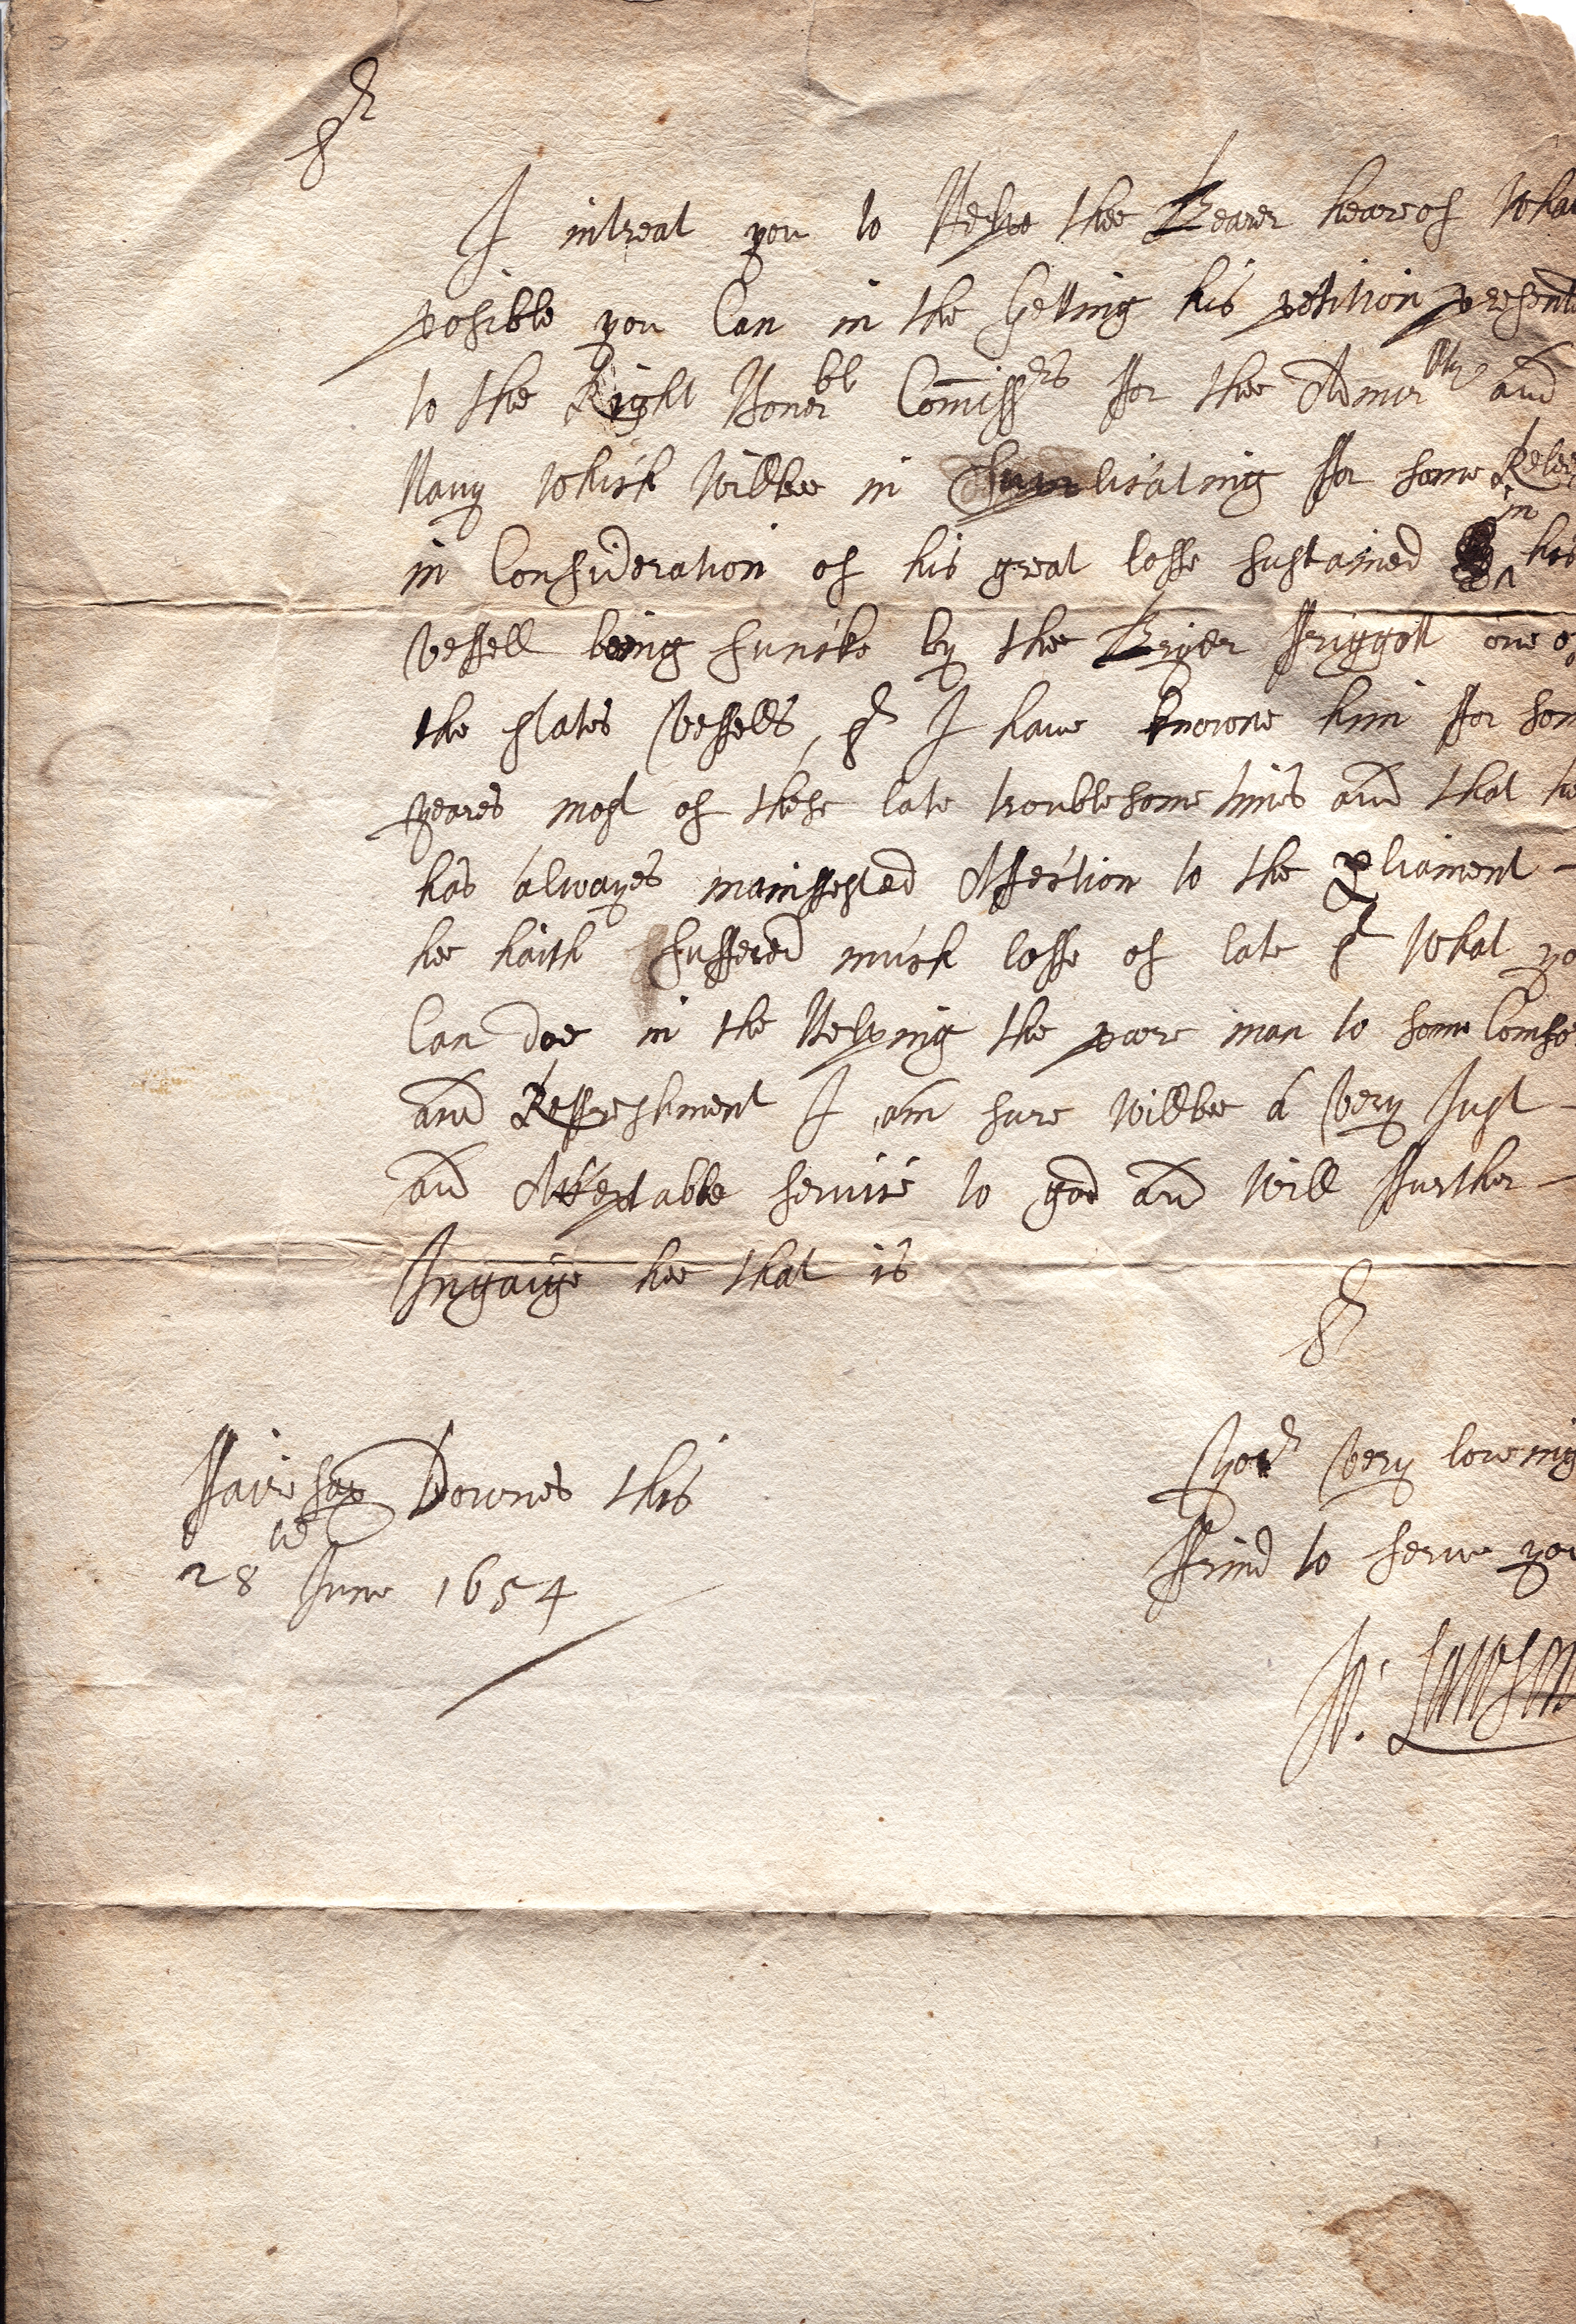 Sr
I intreat you to Helpe thee Bearer heareof what
posible you Can in the Getting his petition present
to the Right Honerbl Commissrs ffor thee Admirllty and
Navy which willbee in suplicating ffor some Relei
in Consideration of his great losse sustained in his
Vessell being suncke by the Brier ffriggott one of
the states Vessells, Sr I have knowne him ffor som
yeares most of these late troublesome times and that hee
has alwayes maniffested Affection to the pliament -
hee haith suffered much losse of late Sr what yo
Can doe in the Helping the poore man to some Comfo
and Reffreshment I am sure willbee a Very Just -
and Acceptable service to god and will ffurther -
Ingaige hee that is
Sr
ffairefax Downes this
28th June 1654
Yor Very loveing
ffrind to serve you
Jo: Lawson